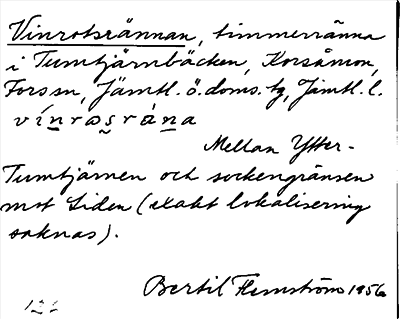 Vinrotsrännan, timmerränna
i Tumtjärnbäcken, Korsåmon,
Fors sn, Jämtl. ö. doms. tg, Jämtl. l.
vi̱nrας̱rána
Mellan Ytter-
Tumtjärnen och sockengränsen
mot Liden (exakt lokalisering
saknas).
Bertil Flemström 1956